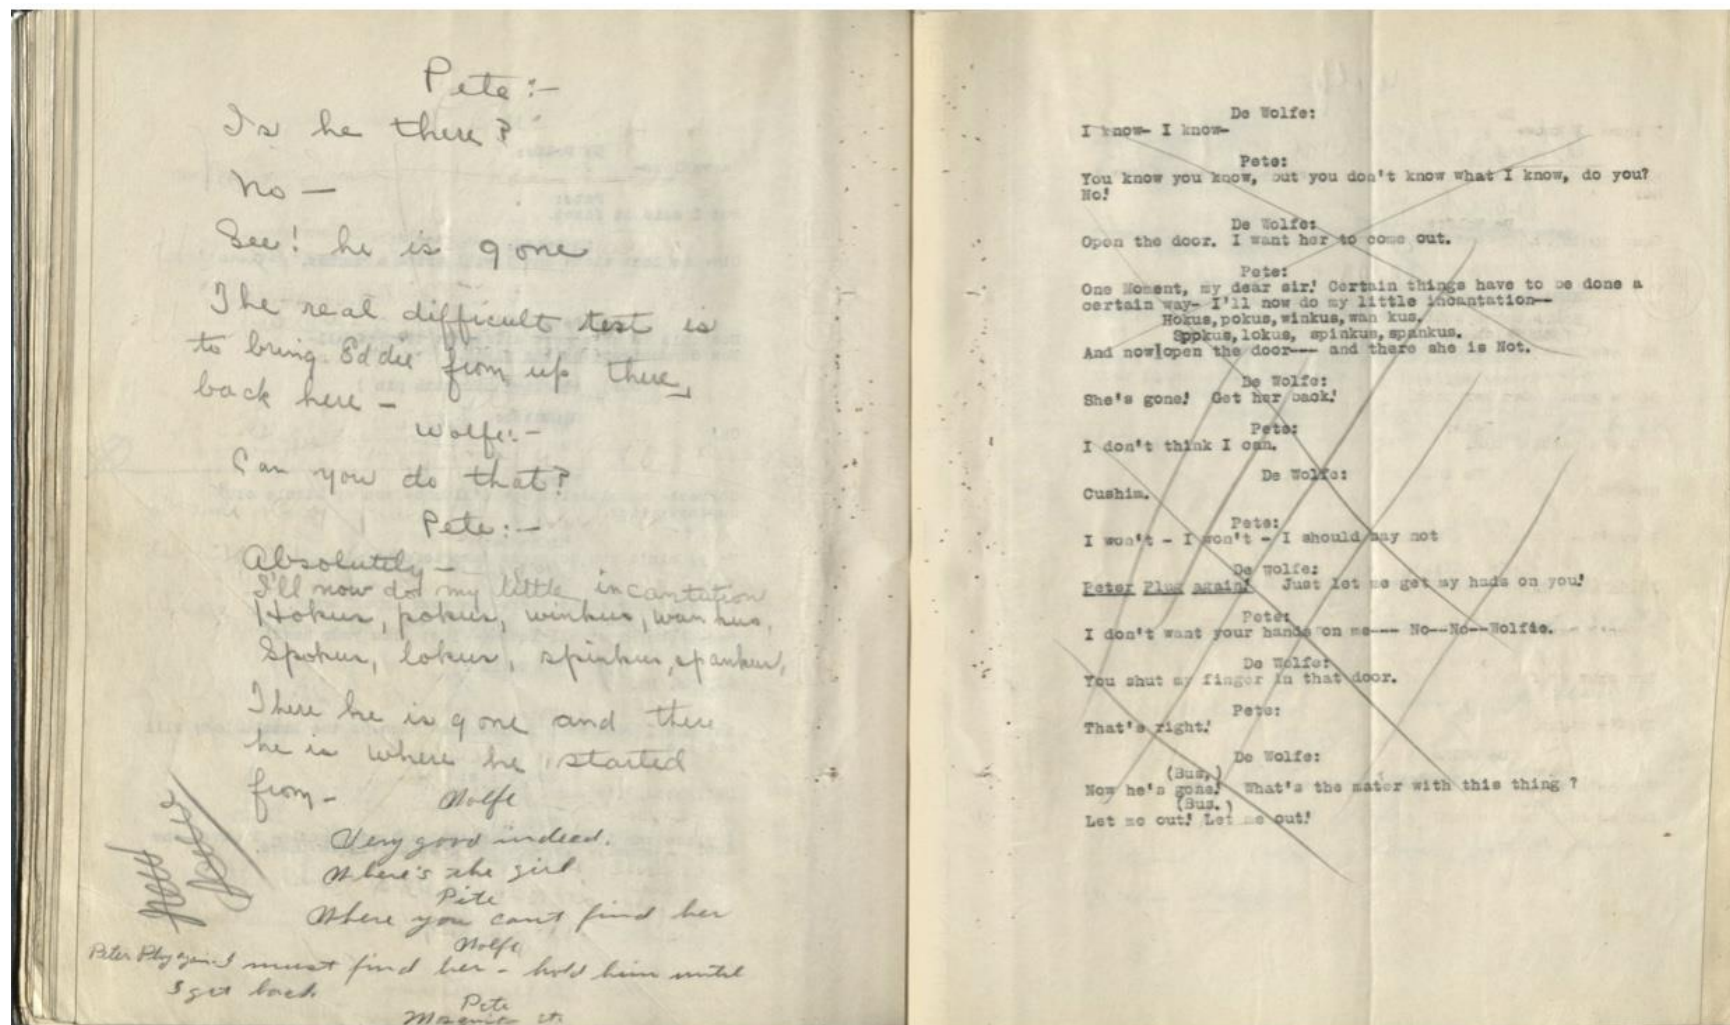 Pete:-
Is he there?
No -
See! he is gone
The real difficult test is
to bring Eddie from up there,
back here -
Wolfe:-
Can you do that?
Pete:-
Absolutely -
I'll now do my little incantation
Hokus, pokus, winkus, wankus,
Spokus, lokus, spinkus, spankus,
There he is gone and there
he is where he started
from -
Wolfe
Very good indeed.
Where's the girl
Pete
Where you cant find her
Wolfe
Peter Plug again I must find her - hold him until
I get back
Pete
De Wolfe:
I know- I know-
Pete:
You know you know, but you don't know what I know, do you?
No!
De Wolfe:
Open the door. I want her to come out.
Pete:
One Moment, my dear sir! Certain things have to be done a
certain way- I'll now do my little incantation--
Hokus,pokus,winkus,wan kus,
Spokus,lokus, spinkus,spankus.
And now open the door--- and there she is Not.
De Wolfe:
She's gone! Get her back!
Pete:
I don't think I can.
De Wolfe:
Cushim.
Pete:
I won't - I won't - I should say not
De wolfe:
Peter Plug again! Just let me get my hads on you!
Pete:
I don't want your hands on me--- No--No--Wolfie.
De Wolfe:
You shut my finger in that door.
Pete:
That's right!
De Wolfe:
(Bus.)
Now he's gone! What's the mater with this thing ?
(Bus.)
Let me out! Let me out!